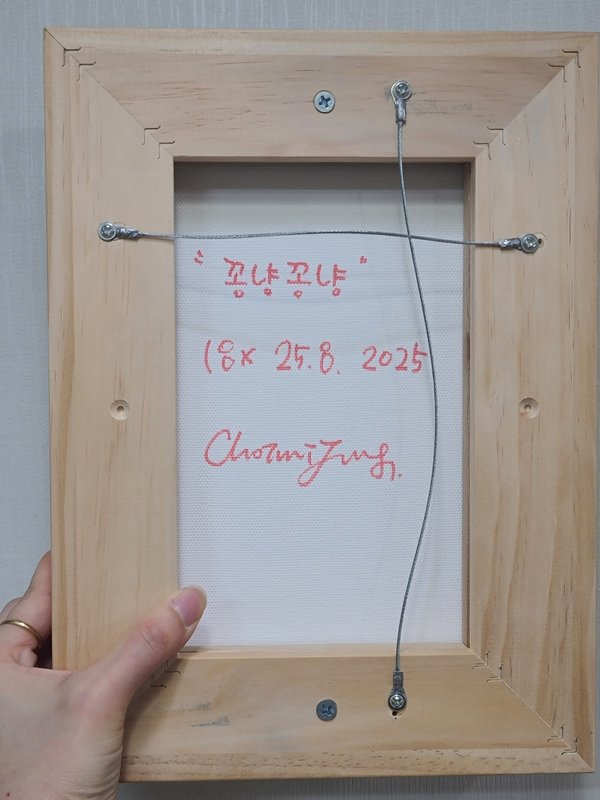 "꽁냥꽁냥"
18x 25.8. 2025
ChoRmiJung.